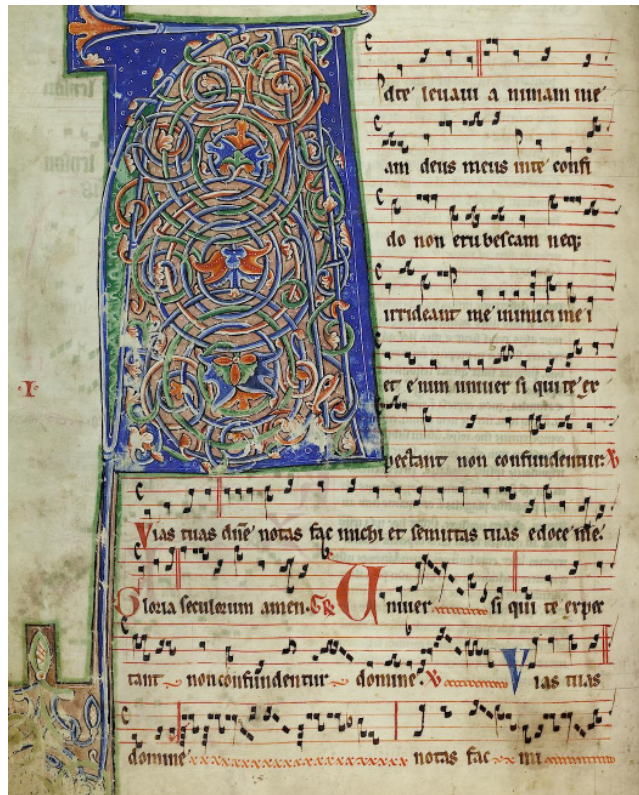 ·I·
A
dte leuaui a nimam me
am deus meus inte confi
do non erubescam neqꝫ
irrideant me inimici me i
et e nim uniuer si qui te ex
pectant non confundentur: ℣
Vias tuas dn̄e notas fac michi et semitas tuas edoce me.
Gloria seculorum amen. GR̷ Uniuer si qui te expec
tant non confundentur domine. ℣ Vias tuas
domine notas fac mi